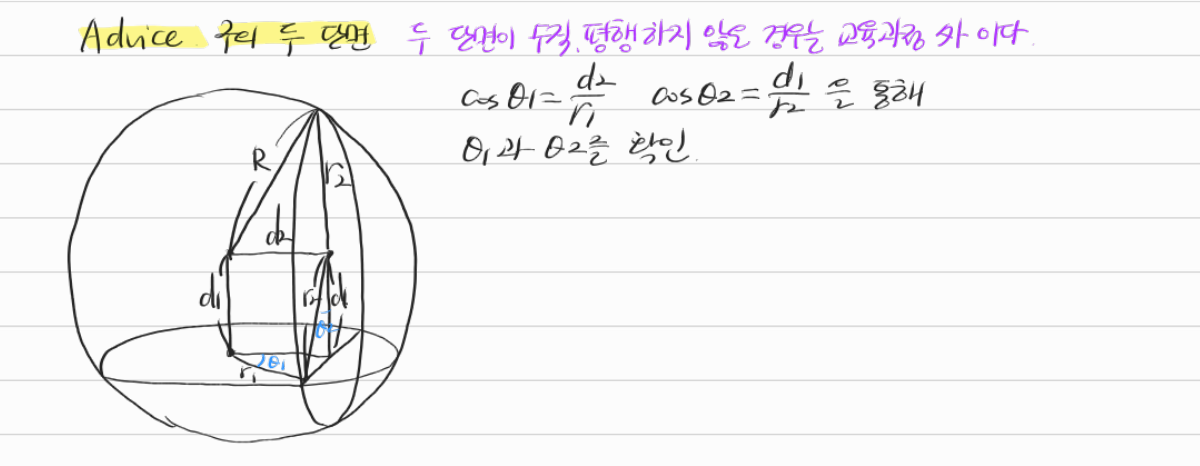 Advice. 구의 두 단면 두 단면이 수직, 평행하지 않은 경우는 교육과정 外 이다.
cosθ1=d2/r1 cosθ2=d1/r2 을 통해
θ1과 θ2를 확인.
R
r2
d2
d1 r2 d1
θ2
θ1
r1